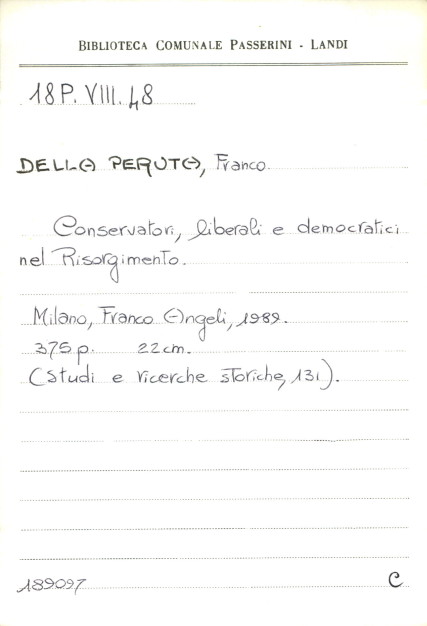 BIBLIOTECA COMUNALE PASSERINI - LANDI
18P. VIII. 48
DELLA PERUTA, Franco.
Conservatori, liberali e democratici
nel Risorgimento.
Milano, Franco Angeli, 1989.
375 p. 22 cm.
(Studi e ricerche storiche, 131).
189097 C